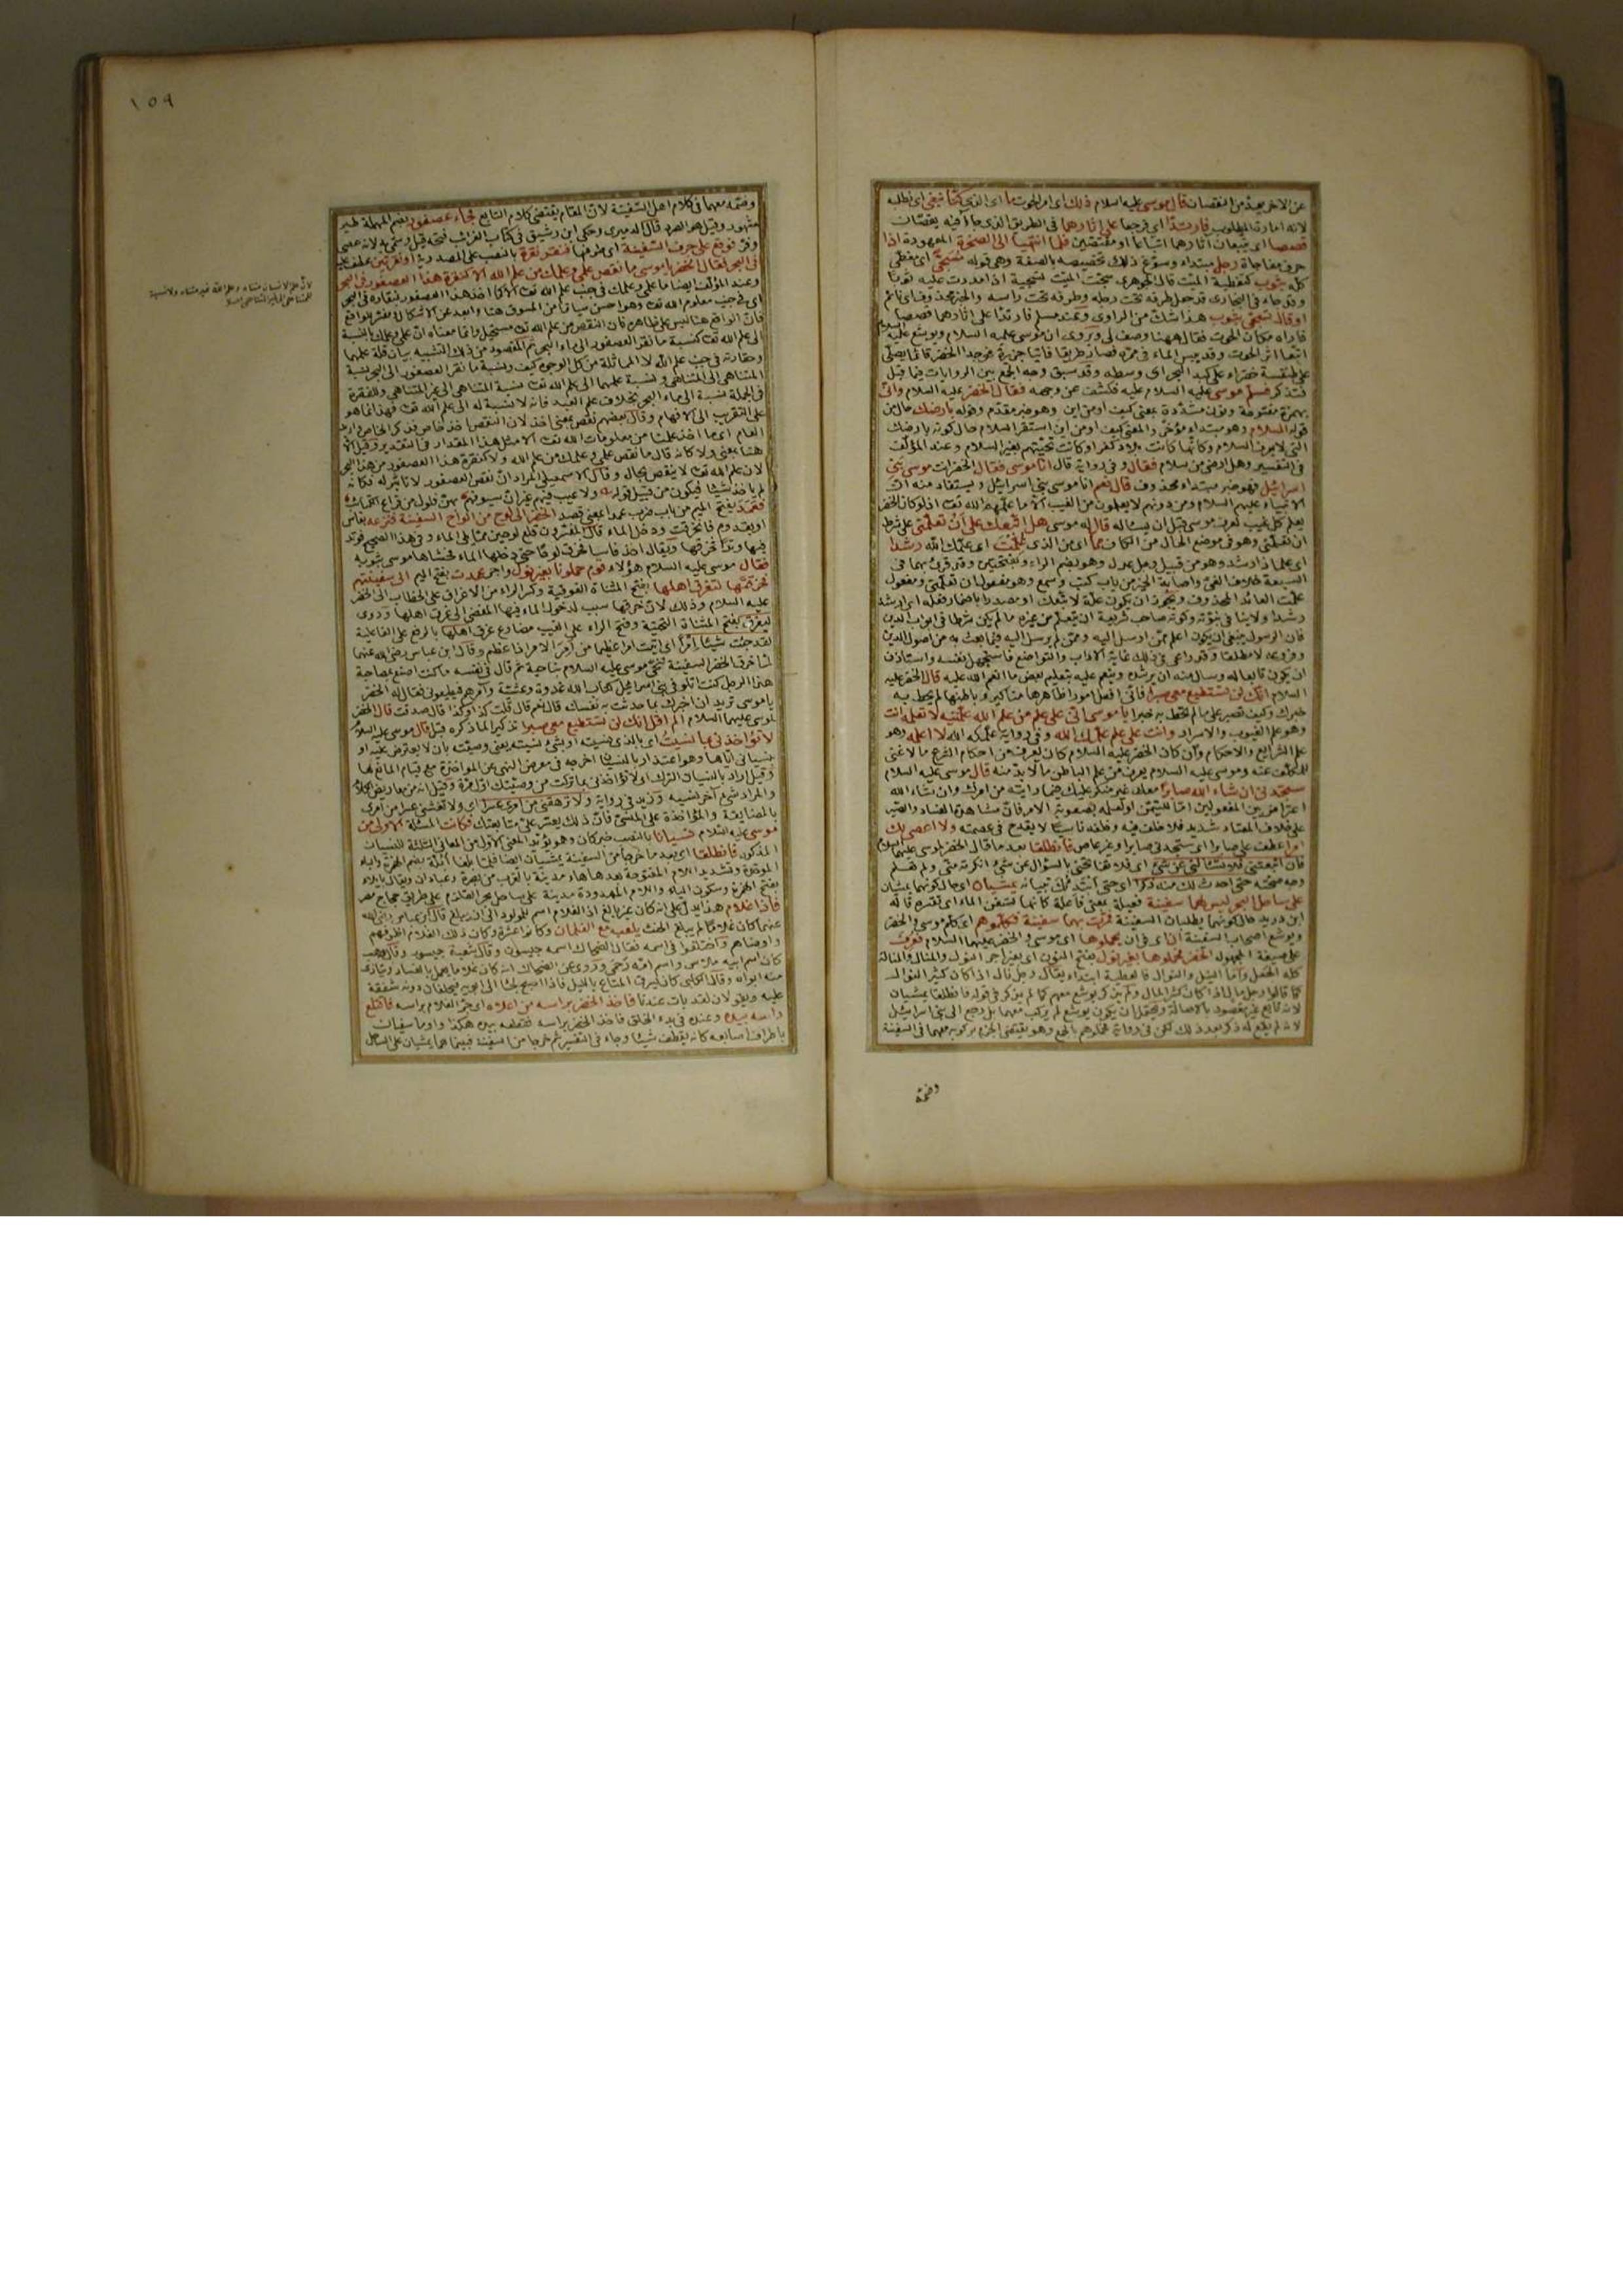 عن الاخر بعيد من النقصان قال موسى عليه السلام ذلك اى امر الحوت ما اى الذى كنا نبغى اى نطلبه
لانه امارة المطلوب فارتدا اى فرجعا على اثارهما فى الطريق الذى جاآ فيه يقصان
قصصا اى يتبعان اثارهما اتباعا او مقتصين فلما انتهيا الى الصخرة المعهودة اذا
حرف مفاجاة رجل مبتداء وسوغ ذلك تخصيصه بالصفة وهى قوله مسجى اى مغطى
كله بثوب كتغطية الميت قال الجوهرى سجيت الميت تسجية اذا مددت عليه ثوبا
وقد جاء فى البخارى قد جعل طرفه تحت رجله وطرفه تحت راسه والخبر محذوف اى نائم
او قال تسجى بثوب هذا شك من الراوى وعند مسلم فارتدا على اثارهما قصصا
فاراه مكان الحوت فقال ههنا وصف لى ويروى ان موسى عليه السلام ويوشع عليه السلام
اتبعا اثر الحوت وقد يبس الماء فى ممره فصار طريقا فاتيا جزيرة فوجدا الخضر قائما يصلى
على طنفسة خضراء على كبد البحر اى وسطه وقد سبق وجه الجمع بين الروايات فيما قبل
فتذكر فسلم موسى عليه السلام عليه فكشف عن وجهه فقال الخضر عليه السلام وانى
بهمزة مفتوحة ونون مشددة بمعنى كيف او من اين وهو خبر مقدم وقوله بارضك حال من
قوله السلام وهو مبتداء مؤخر والمعنى كيف او من اين استقر السلام حال كونه بارضك
التى لا يعرف السلام وكانها كانت بلاد كفر او كانت تحيتهم بغير السلام وعند المؤلف
فى التفسير وهل بارضى من سلام فقال وفى رواية قال انا موسى فقال الخضر انت موسى بنى
اسرائيل فهو خبر مبتداء محذوف قال نعم انا موسى بنى اسرائيل ويستفاد منه ان
الانبياء عليهم السلام ومن دونهم لا يعلمون من الغيب الا ما علمهم الله تعالى اذ لو كان الخضر
يعلم كل غيب لعرف موسى قبل ان يساله قال له موسى هل اتبعك على ان تعلمنى على شرط
ان تعلمنى وهو فى موضع الحال من الكاف مما اى من الذى علمت اى علمك الله رشدا
اى علما ذا رشد وهو من قبيل رجل عدل وهو بضم الراء وبفتحتين وقد قرئ بهما فى
السبعة خلاف الغى واصابة الخير من باب كتب وسمع وهو مفعول ثان لتعلمنى ومفعول
علمت العائد المحذوف ويجوز ان يكون علة لاتبعك او مصدرا باضمار فعله اى ارشد
رشدا ولا ينافى نبوته وكونه صاحب شريعة ان يتعلم من غيره ما لم يكن شرطا فى ابواب الدين
فان الرسول ينبغى ان يكون اعلم ممن ارسل اليه وممن لم يرسل اليه فيما بعث به من اصول الدين
وفروعه لا مطلقا وقد راعى فى ذلك غاية الاداب والتواضع فاستجهل نفسه واستاذن
ان يكون تابعا له وسال منه ان يرشده وينعم عليه بتعليم بعض ما انعم الله عليه قال الخضر عليه
السلام انك لن تستطيع معى صبرا فانى افعل امورا ظاهرها مناكير وباطنها لم يحط به
خبرك وكيف تصبر على ما لم تحط به خبرا يا موسى انى على علم من علم الله علمنيه لا تعلمه انت
وهو علم الغيوب والاسرار وانت على علم علمك الله وفى رواية علمكه الله لا اعلمه وهو
علم الشرائع والاحكام وان كان الخضر عليه السلام كان يعرف من احكام الشرع ما لا غنى
للمكلف عنه وموسى عليه السلام يعرف من علم الباطن ما لا بد منه قال موسى عليه السلام
ستجدنى ان شاء الله صابرا معك غير منكر عليك حينما رايته من امرك وان شاء الله
اعتراض بين المفعولين اما للتيمن او لعلمه بصعوبة الامر فان مشاهدة الفساد والصبر
على خلاف المعتاد شديد فلا خلف فيه وخلفه ناسيا لا يقدح فى عصمته ولا اعصى لك
امرا عطف على صابرا اى ستجدنى صابرا وغير عاص فانطلقا بعد ما قال الخضر لموسى عليهما السلام
فان اتبعتنى فلا تسئلنى عن شئ اى فلا تفاتحنى بالسؤال عن شئ انكرته منى ولم تعلم
وجه صحته حتى احدث لك منه ذكرا اى حتى ابتدئك ببيانه يمشيان اى حال كونهما يمشيان
على ساحل البحر ليس لهما سفينة فعيلة بمعنى فاعلة كانها تسفن الماء اى تقشره قاله
ابن دريد حال كونهما يطلبان السفينة فمرت بهما سفينة فكلموهم اى كلم موسى والخضر
ويوشع اصحاب السفينة ان اى فى ان يحملوهما اى موسى والخضر عليهما السلام فعرف
على صيغة المجهول الخضر فحملوهما بغير نول بفتح النون اى بغير اجر النول والمنال والمنالة
كله الجعل واما النيل والنوال فالعطية ابتداء يقال رجل نال اذا كان كثير النوال
كما قالوا رجل مال اذا كان كثير المال ولم يذكر يوشع معهم كما لم يذكر فى قوله فانطلقا يمشيان
لانه تابع غير مقصود بالاصالة ويحتمل ان يكون يوشع لم يركب معهما بل رجع الى بنى اسرائيل
لانه لم يقع له ذكر بعد ذلك لكن فى رواية فحملوهم بالجمع وهو يقتضى الجزم بركوبه معهما فى السفينة
وضمه
١٥٩
وضمه معهما فى كلام اهل السفينة لان المقام يقتضى كلام التابع فجاء عصفور بضم المهملة طير
مشهور وقيل هو الصرد قال الدميرى وحكى ابن رشيق فى كتاب الغرائب فتحه قيل وسمى به لانه عصى
وفر فوقع على حرف السفينة اى طرفها فنقر نقرة بالنصب على المصدرية او نقرتين عطف عليه
فى البحر فقال الخضر يا موسى ما نقص علمى وعلمك من علم الله الا كنقرة هذا العصفور فى البحر
وعند المؤلف ايضا ما علمى وعلمك فى جنب علم الله تعالى الا كما اخذ هذا العصفور بمنقاره فى البحر
اى فى جنب معلوم الله تعالى وهو احسن سياقا من المسوق هنا وابعد عن الاشكال ومفسر للواقع
فان الواقع هنا ليس على ظاهره فان النقص من علم الله تعالى مستحيل وانما معناه ان علمى وعلمك بالنسبة
الى علم الله تعالى كنسبة ما نقر العصفور الى ماء البحر ثم المقصود من ذلك التشبيه بيان قلة علمهما
وحقارته فى جنب علم الله لا المماثلة من كل الوجوه كيف ونسبة ما نقر العصفور الى البحر نسبة
المتناهى الى المتناهى ونسبة علمهما الى علم الله تعالى نسبة المتناهى الى غير المتناهى وللنقرة
فى الجملة نسبة الى ماء البحر بخلاف علم العبد فانه لا نسبة له الى علم الله تعالى فهذا انما هو
على التقريب الى الافهام وقال بعضهم نقص بمعنى اخذ لان النقص اخذ خاص فذكر الخاص واريد
العام اى ما اخذ علمنا من معلومات الله تعالى الا مثل هذا المقدار فى التقدير وقيل الا
هنا بمعنى ولا كانه قال ما نقص علمى وعلمك من علم الله ولا كنقرة هذا العصفور من هذا البحر
لان علم الله تعالى لا ينقص بحال وقال الاسمعيلى المراد ان نقص العصفور لا تاثير له فكانه
لم ياخذ شيئا فيكون من قبيل قوله ولا عيب فيهم غير ان سيوفهم بهن فلول من قراع الكتائب
فعمد بفتح الميم من باب ضرب عمدا بمعنى قصد الخضر الى لوح من الواح السفينة فنزعه بفاس
او بقدوم فانخرقت ودخل الماء قال المفسرون قلع لوحين مما يلى الماء وفى هذا الصحيح فوتد
فيها وتدا فخرقها ويقال اخذ فاسا فخرق لوحا حتى دخلها الماء فحشاها موسى بثوبه
فقال موسى عليه السلام هؤلاء قوم حملونا بغير نول واجر عمدت بفتح الميم الى سفينتهم
فخرقتها لتغرق اهلها بفتح المثناة الفوقية وكسر الراء من الاغراق على الخطاب الى الخضر
عليه السلام وذلك لان خرقها سبب لدخول الماء فيها المفضى الى غرق اهلها وروى
ليغرق بفتح المثناة التحتية وفتح الراء على الغيب مضارع غرق اهلها بالرفع على الفاعلية
لقد جئت شيئا امرا اى اتيت امرا عظيما من امر الامر اذا عظم وقال ابن عباس رضى الله عنهما
لما خرق الخضر السفينة تنحى موسى عليه السلام ناحية ثم قال فى نفسه ما كنت اصنع بمصاحبة
هذا الرجل كنت اتلو فى بنى اسرائيل كتاب الله غدوة وعشية وآمرهم فيطيعونى فقال له الخضر
يا موسى تريد ان اخبرك بما حدثت به نفسك قال نعم قال قلت كذا وكذا قال صدقت قال الخضر
لموسى عليهما السلام الم اقل انك لن تستطيع معى صبرا تذكيرا لما ذكره قبل قال موسى عليه السلام
لا تؤاخذنى بما نسيت اى بالذى نسيته او بشئ نسيته يعنى وصيته بان لا يعترض عليه او
بنسيانى اياها وهو اعتذار بالنسيان اخرجه فى معرض النهى عن المواخذة مع قيام المانع لها
وقيل اراد بالنسيان الترك اى لا تؤاخذنى بما تركت من وصيتك اول مرة وقيل انه من معاريض الكلام
والمراد شئ آخر نسيه وزيد فى رواية ولا ترهقنى من امرى عسرا اى ولا تغشنى عسرا من امرى
بالمضايقة والمؤاخذة على المنسى فان ذلك يعسر على متابعتك فكانت المسئلة الاولى من
موسى عليه السلام نسيانا بالنصب خبر كان وهو يؤيد المعنى الاول من المعانى الثلثة للنسيان
المذكور فانطلقا اى بعد ما خرجا من السفينة يمشيان ايضا فبلغا ابلة بضم الهمزة والباء
الموحدة وتشديد اللام المفتوحة بعدها هاء مدينة بالقرب من بصرة وعبادان ويقال بايلة
بفتح الهمزة وسكون الياء واللام الممدودة مدينة على ساحل بحر القلزم على طريق حجاج مصر
فاذا غلام هذا يدل على انه كان غير بالغ اذ الغلام اسم للمولود الى ان يبلغ قال ابن عباس رضى الله
عنهما كان غلاما لم يبلغ الحنث يلعب مع الغلمان وكانوا عشرة وكان ذلك الغلام اظرفهم
واوضاهم واختلفوا فى اسمه فقال الضحاك اسمه جيسون وقال شعبة جيسور وقال وهب
كان اسم ابيه ملاس واسم امه رحمى وروى عن الضحاك انه كان غلاما يعمل بالفساد ويتاذى
منه ابواه وقال الكلبى كان يسرق المتاع بالليل فاذا اصبح لجا الى ابويه فيحلفان دونه شفقة
عليه ويقولان لقد بات عندنا فاخذ الخضر براسه من اعلاه اى جر الغلام براسه فاقتلع
راسه بيده وعنده فى بدء الخلق فاخذ الخضر براسه فقطعه بيده هكذا واوما سفيان
باطراف اصابعه كانه يقطف شيئا وجاء فى التفسير ثم خرجا من السفينة فبينما هما يمشيان على الساحل
لان علم الانسان متناه وعلم الله غير متناه ولا نسبة
للمتناهى الى غير المتناهى اصلا